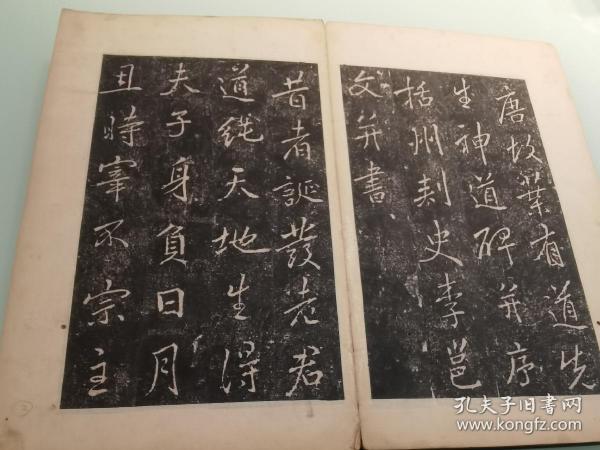 唐故葉有道先
生神道碑并序
括州刾史李邕
文并書
昔者誕發老君
道綂天地生得
夫子身負日月
且時宰不宗主
2
孔夫子旧书网
www.kongfz.com